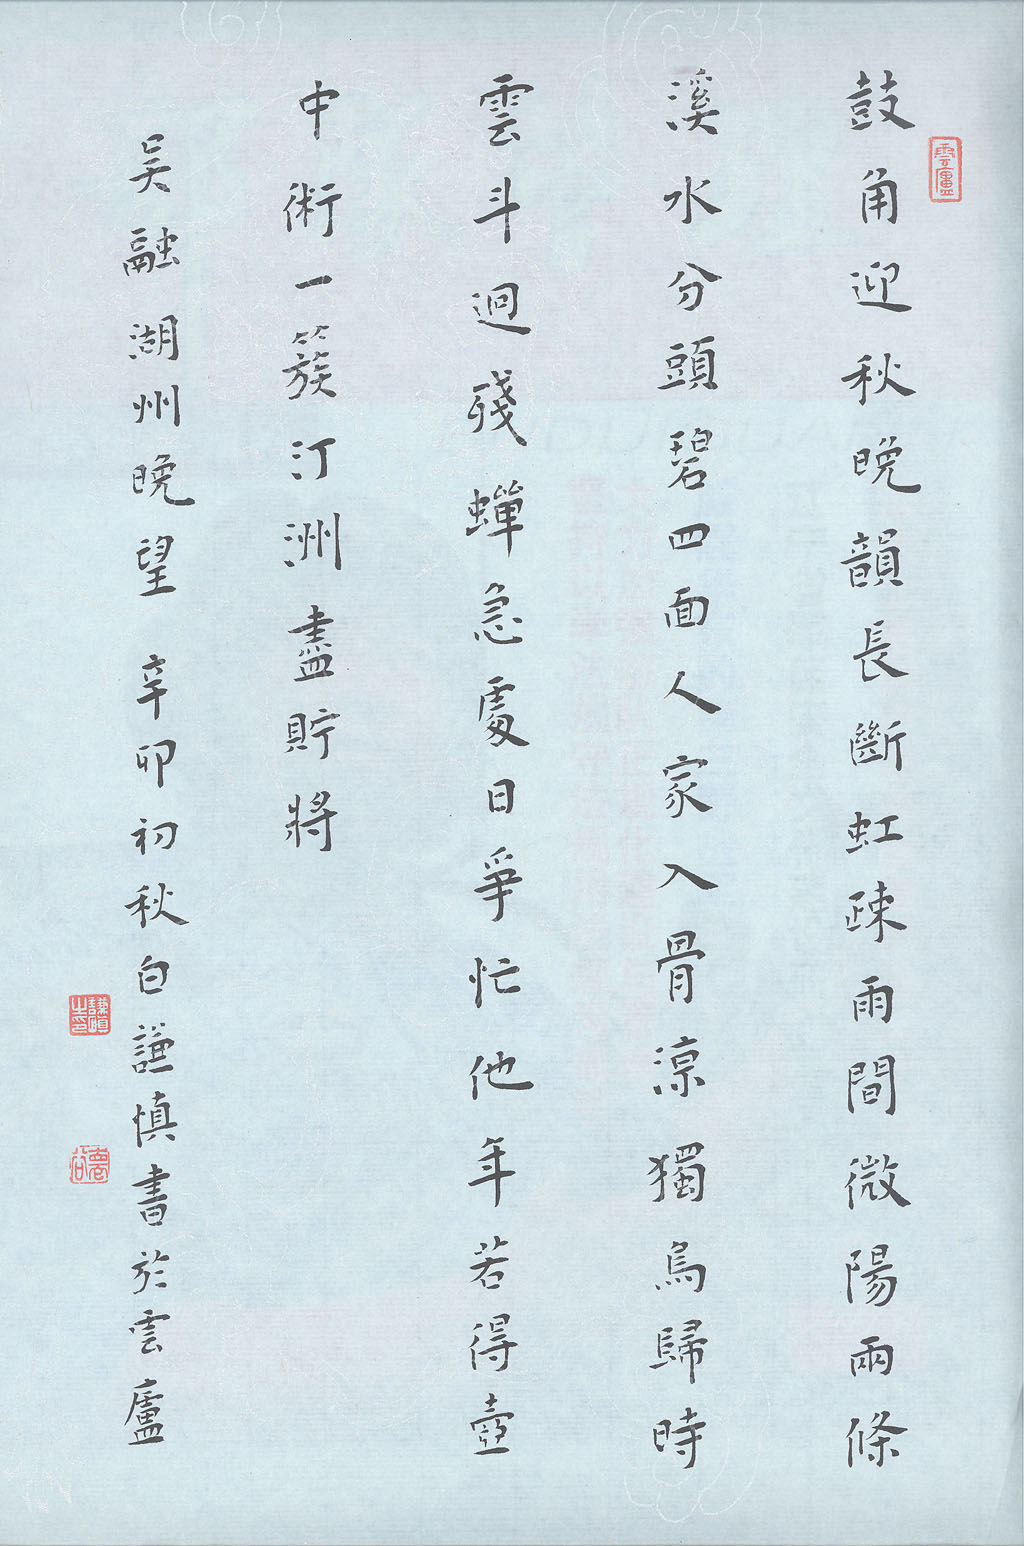 雲廬
鼓角迎秋晚韻長斷虹疎雨間微陽兩條
溪水分頭碧四面人家入骨涼獨鳥歸時
雲斗迥殘蟬急處日爭忙他年若得壺
中術一簇汀洲盡貯將
吳融湖州晚望 辛卯初秋白謙慎書於雲廬
謙慎之印